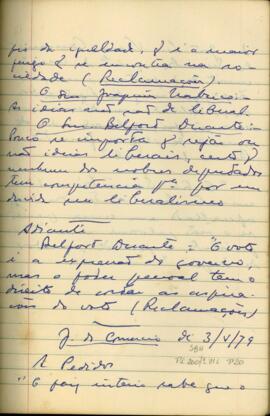 pio de igualdade, q é a maior
perigo q se encontra na so-
ciedade (Reclamações)
O Snr. Joaquim Nabuco:-
As idéias são de liberal
O Snr. Belfort Duarte:-
Pouco se importa q sejão ou
não idéias liberais, certo q
nenhum dos nobres deputados
tem competencia pª por em
duvida seu liberalismo
Adiante
Belfort Duarte: "O voto
é a expressão do governo,
mas o poder pessoal tem o
direito de as aspira-
ções do voto (Reclamações)
J. do Comercio de 3/V/79
SBH
Pi 200 P20
A Pedidos
"O paiz inteiro sabe que o